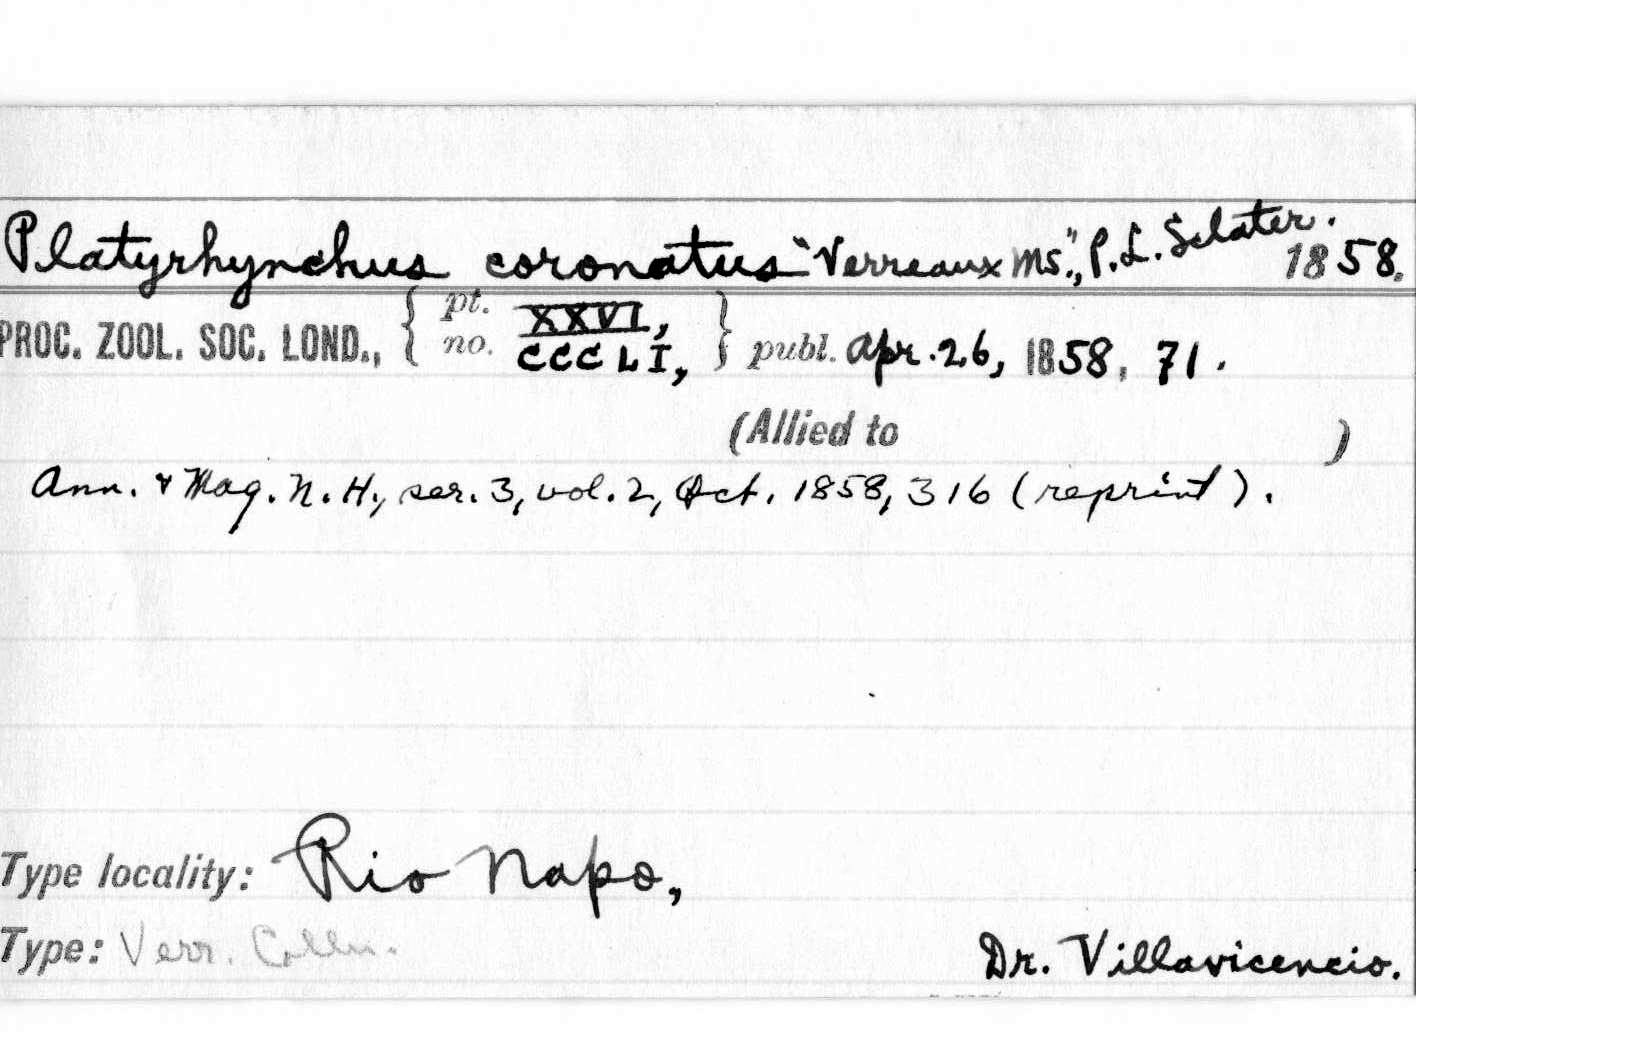 Platyrhynchus coronatus "Verreaux MS.", P. L. Sclater. 1858.
PROC. ZOOL. SOC. LOND., { pt. XXVI, } publ. Apr. 26, 1858, 71.
no. CCCLI,
(Allied to )
Ann. & Mag. N. H., ser. 3, vol. 2, Oct. 1858, 316 (reprint).
Type locality: Rio Napo,
Type: Verr. Colln.
Dr. Villavicencio.